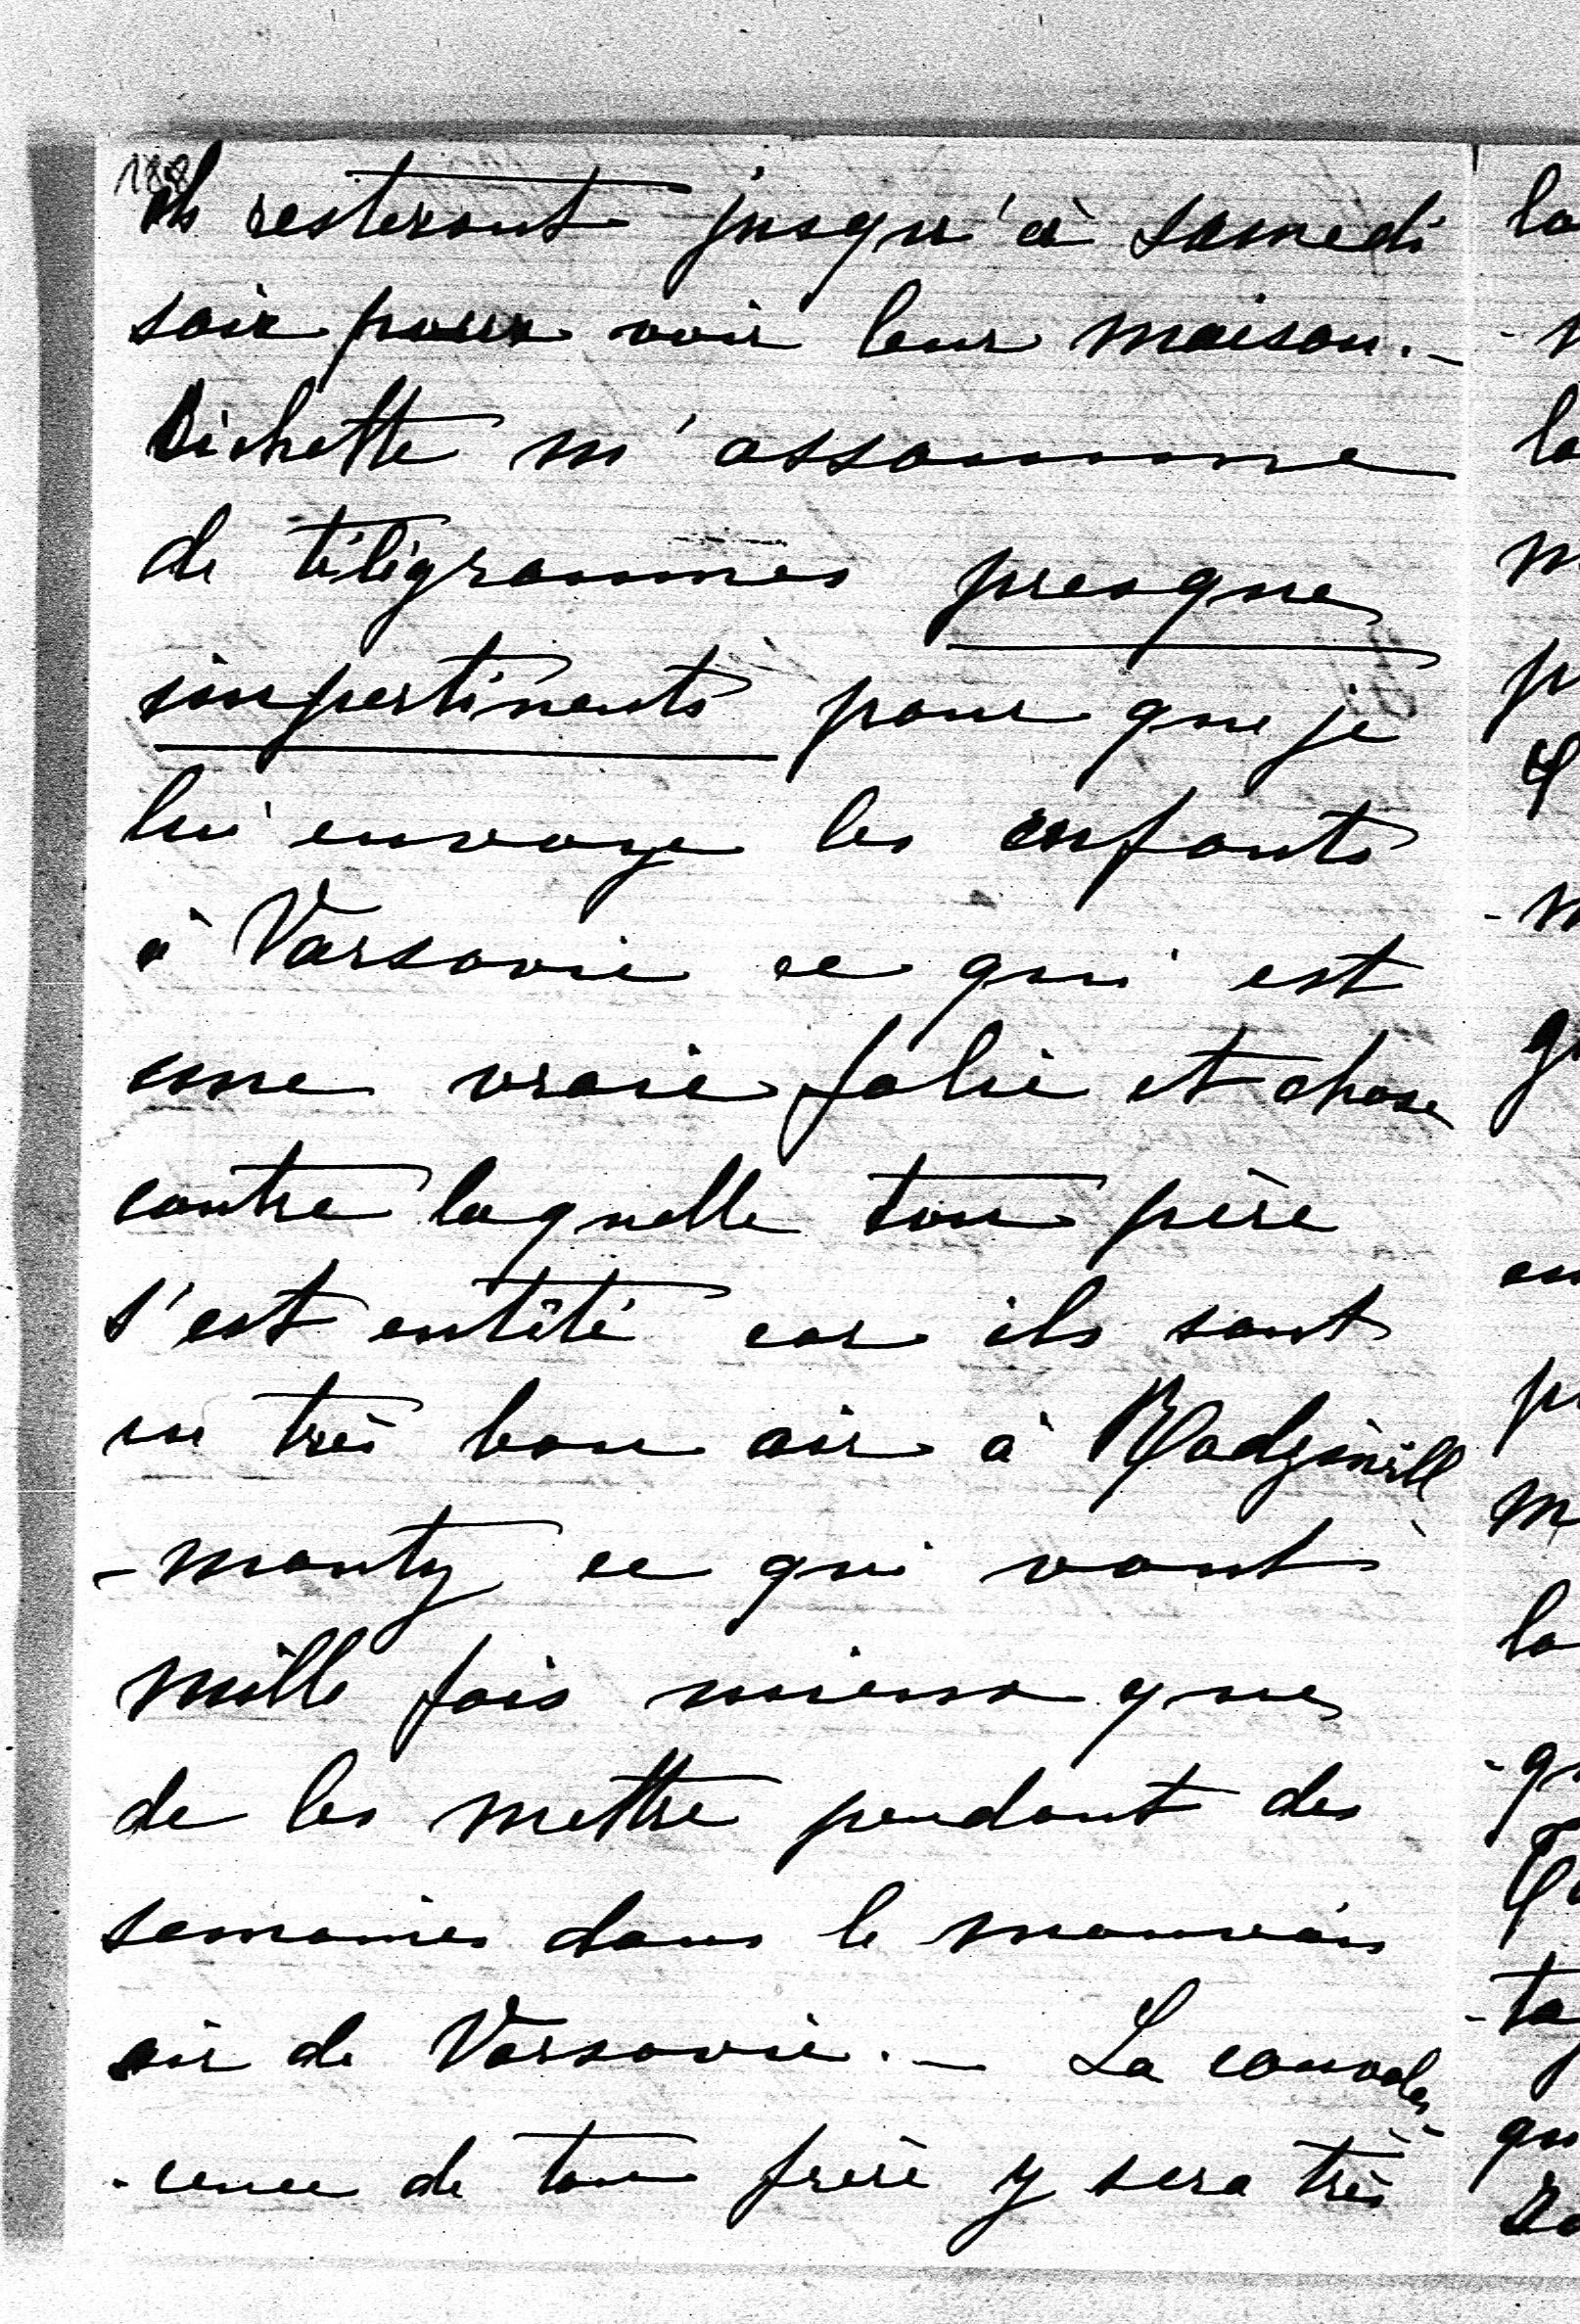 188
ils resteront jusqu'à samedi
soir pour voir leur maison. –
Bichette m'assomme
de télégrammes presque
impertinents pour que je
lui envoye les enfants
à Varsovie ce qui est
une vraie folie et chose
contre laquelle ton père
s'est entêté car ils sont
en très bon air à Radziwill
-monty ce qui vaut
mille fois mieux que
de les mettre pendant des
semaines dans le mauvais
air de Varsovie. – La convales
-cence de ton frère y sera très